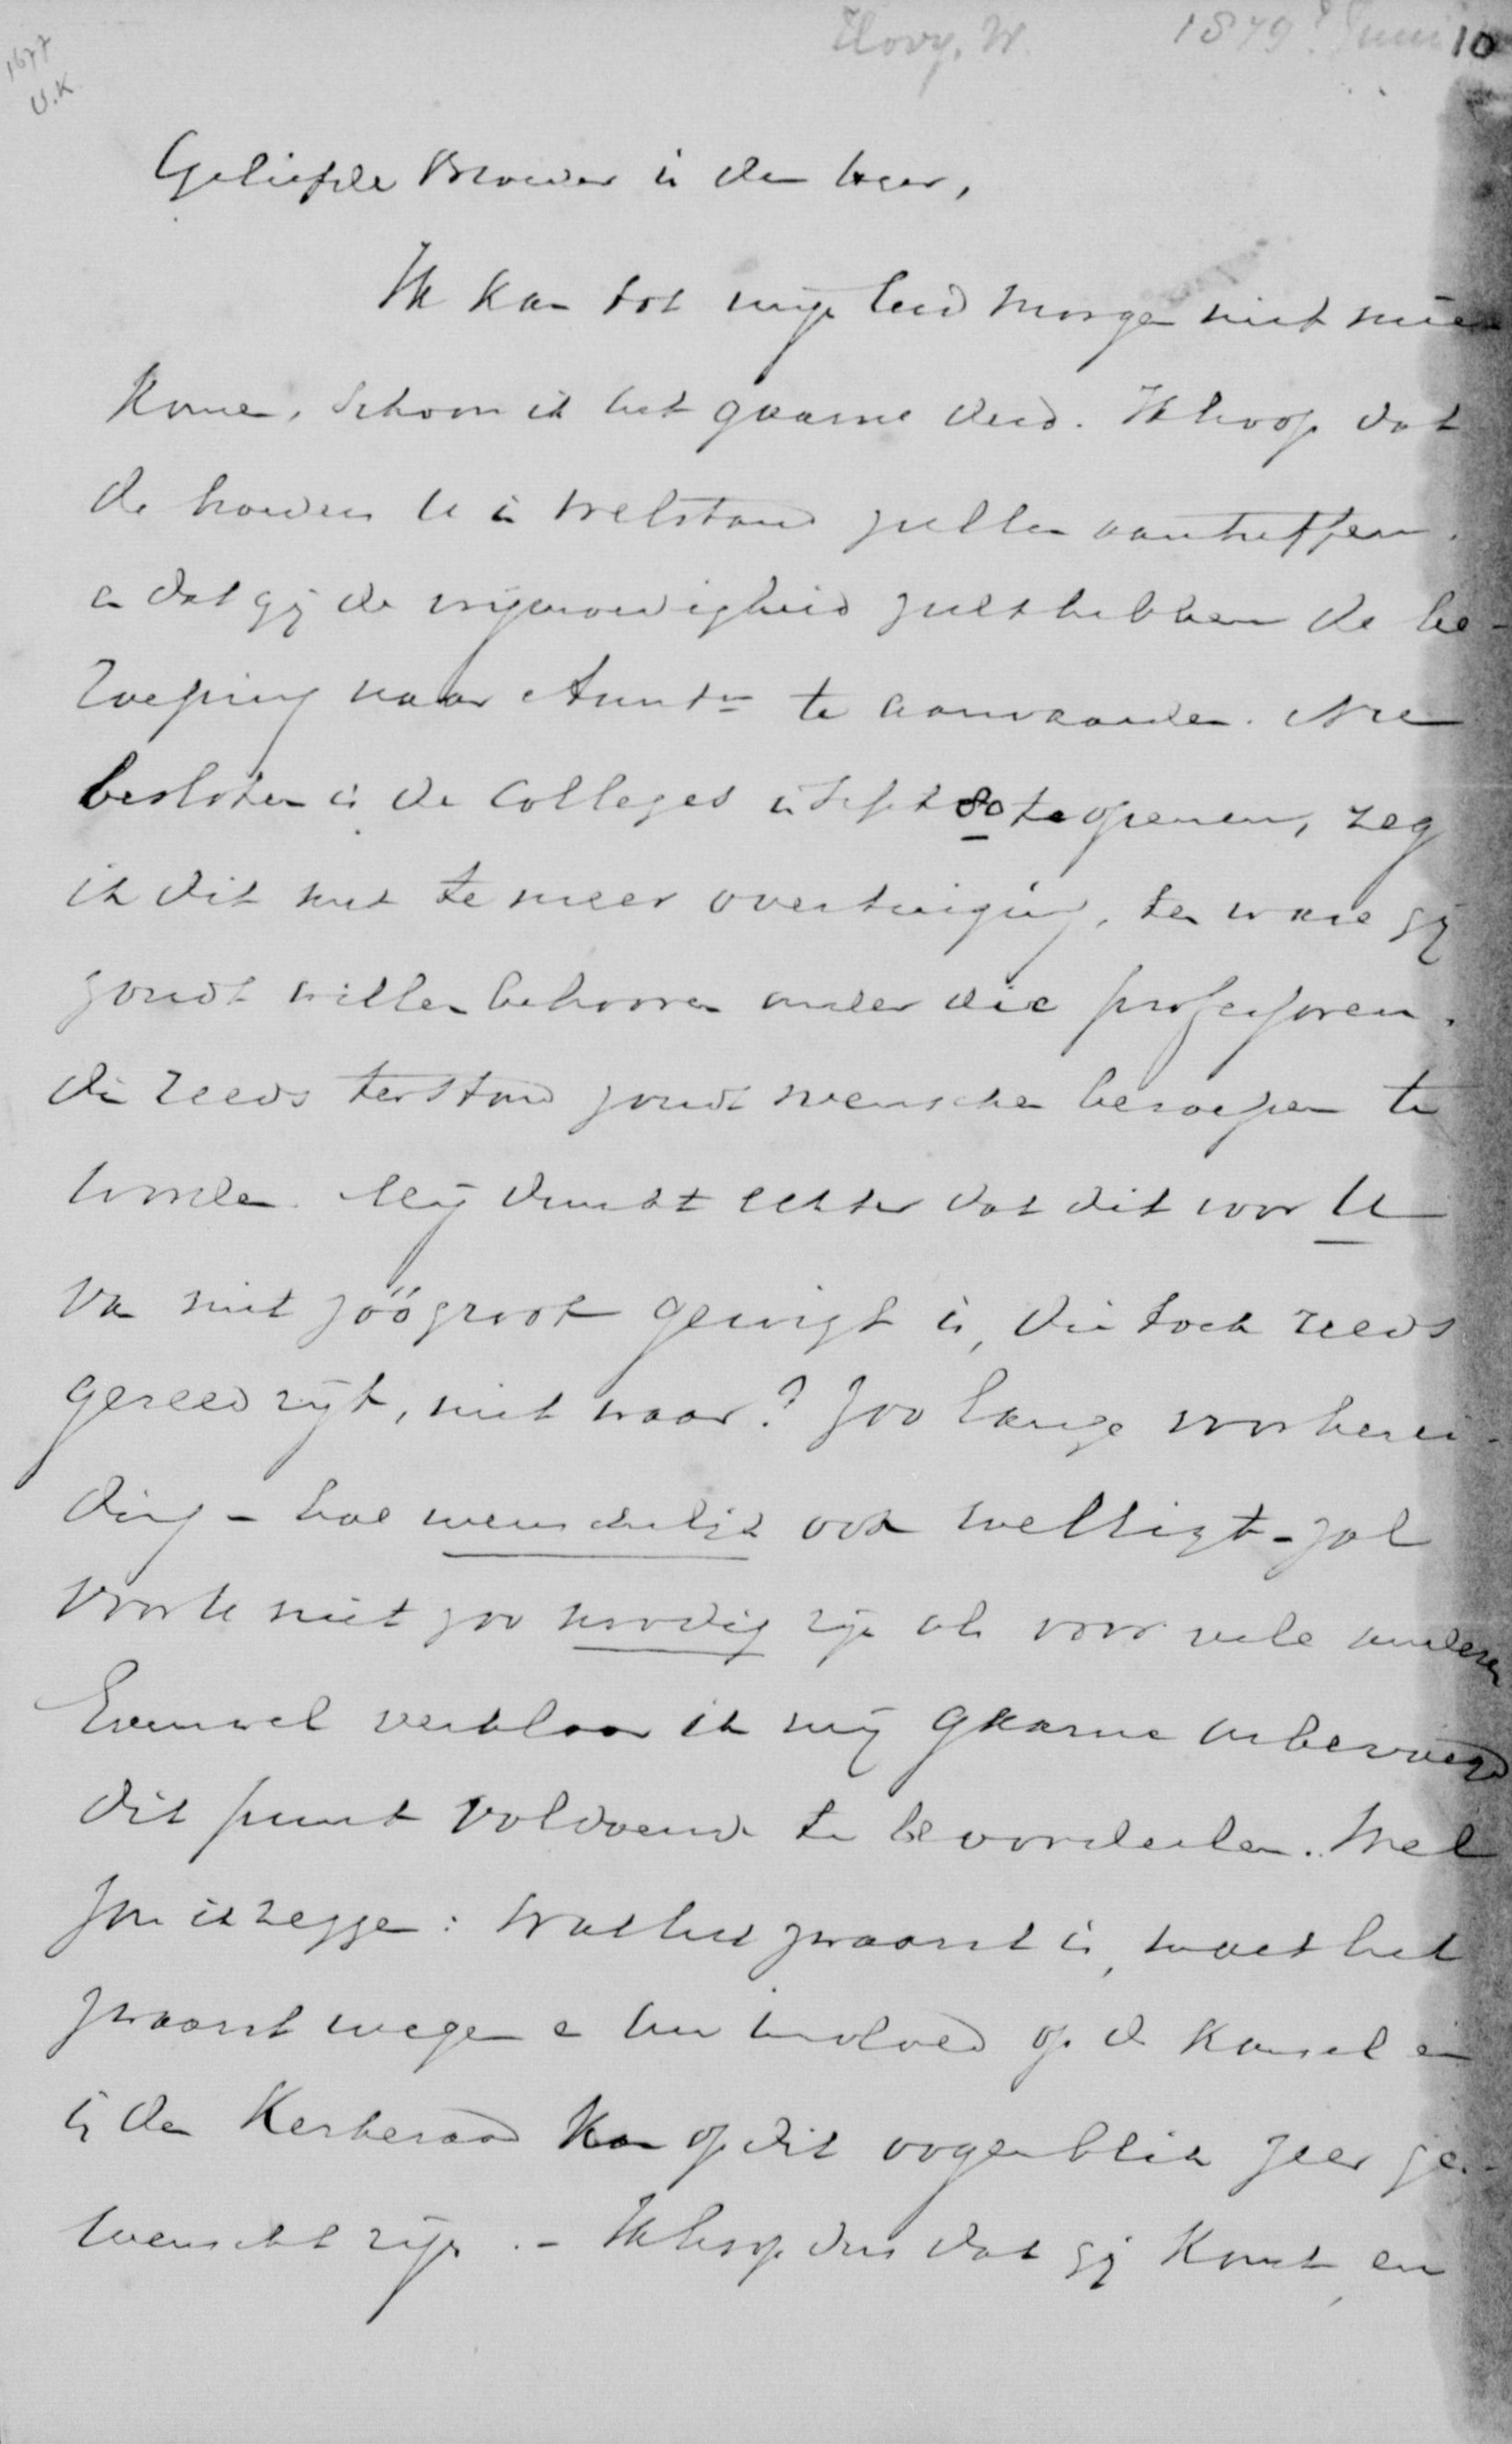 Hovy, W. 1879? Juni 10
1677
U.K
Geliefde Broeder in den Heer,
Ik kan tot mijn leed morgen niet mee
komen, schoon ik het gaarne deed. Ik hoop dat
de broeders U in welstand zullen aantreffen.
en dat gij de vrijmoedigheid zult hebben de be-
roeping naar Amstm te aanvaarden. Nu
besloten is de Colleges in Sept 80 te openen, zeg
ik dit met te meer overtuiging, ten ware gij
zoudt willen behooren onder die professoren.
die reeds terstond zoudt wenschen beroepen te
worden. Mij dunkt echter dat dit voor U
van niet zóó groot gewigt is, die toch reeds
gereed zijt, niet waar? Zoo lange voorberei-
ding - hoe wenschelijk ook welligt - zal
voor U niet zoo noodig zijn als voor vele anderen
Evenwel verklaar ik mij gaarne onbevoegd
dit punt voldoende te beoordeelen. Wel
zou ik zeggen: Wat het zwaarst is, moet het
zwaarst wegen en Uw invloed op de kansel en
in den Kerkeraad kan op dit oogenblik zeer ge-
wenscht zijn. - Ik hoop dus dat gij komt, en